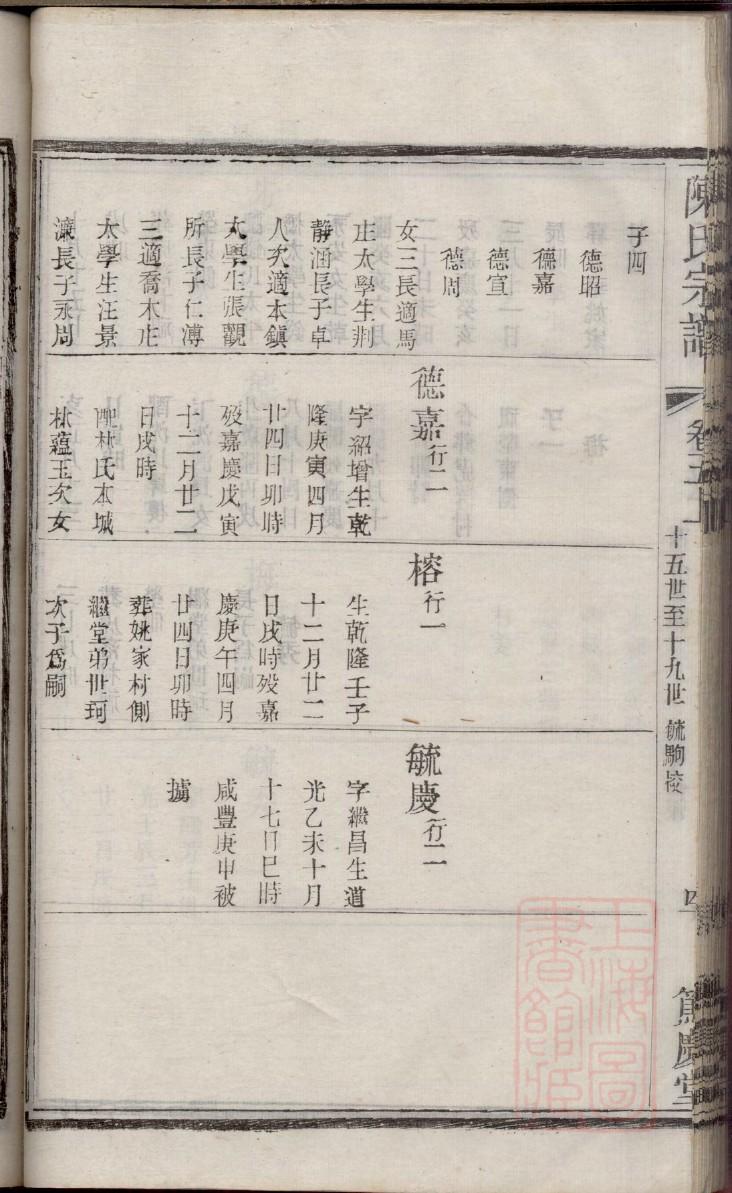 陳氏宗譜
卷五上
十五世至十九世
毓駒校
篤慶堂
子四
德昭
德嘉
德宣
德周
女三長適馬
庄太學生荆
静涵長子卓
人次適本鎮
太學生張觀
所長子仁溥
三適喬木庄
太學生汪景
濂長子承周
德嘉行二
字紹增生乾
隆庚寅四月
廿四日卯時
殁嘉慶戊寅
十二月廿二
日戌時
配林氏本城
林蘊玉次女
榕行一
生乾隆壬子
十二月廿二
日戌時殁嘉
慶庚午四月
廿四日卯時
葬姚家村側
繼堂弟世珂
次子爲嗣
毓慶行二
字繼昌生道
光乙未十月
十七日巳時
咸豐庚申被
擄
上海圖
書館藏